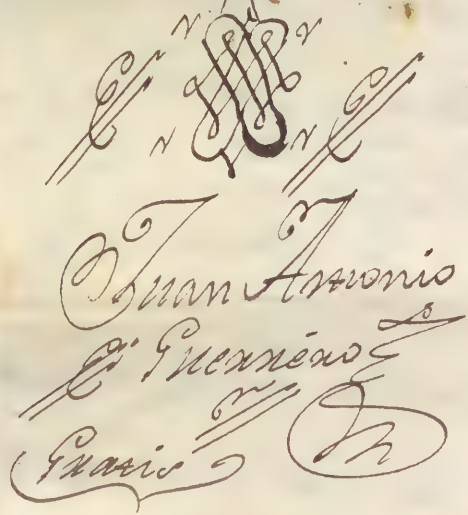 Juan Antonio
Guerrero
Gratis